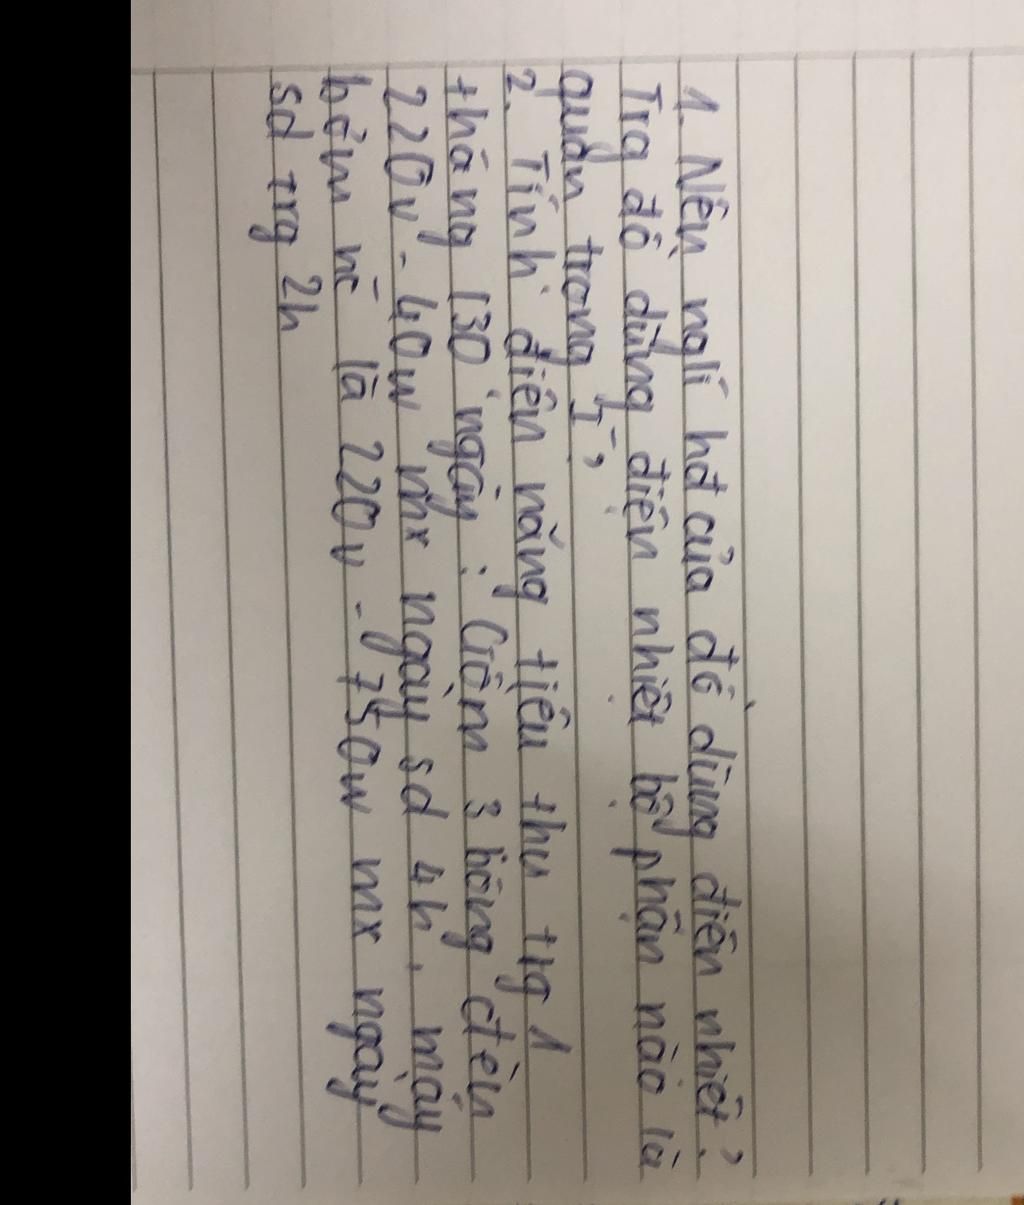 1. Nên nglí hđ của đồ dùng điện nhiệt?
Trg đồ dùng điện nhiệt bộ phận nào là
quan trong I,
2. Tính điện năng tiêu thu trg 1
tháng (30 ngày: Gồm 3 bóng đèn
220v - 40w mx ngày sd 4h, máy
bơm nc là 220v - 750w mx ngày
sd trg 2h